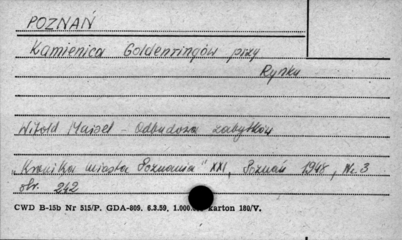 POZNAŃ
Kamienica Goldenringów przy
Rynku
Witold Maisel - Odbudowa zabytków
"Kronika miasta Poznania" XXI, Poznań 1948, Nr. 3
str. 242
CWD B-15b Nr 515/P. GDA-809. 6.3.59. 1.000.000 karton 180/V.